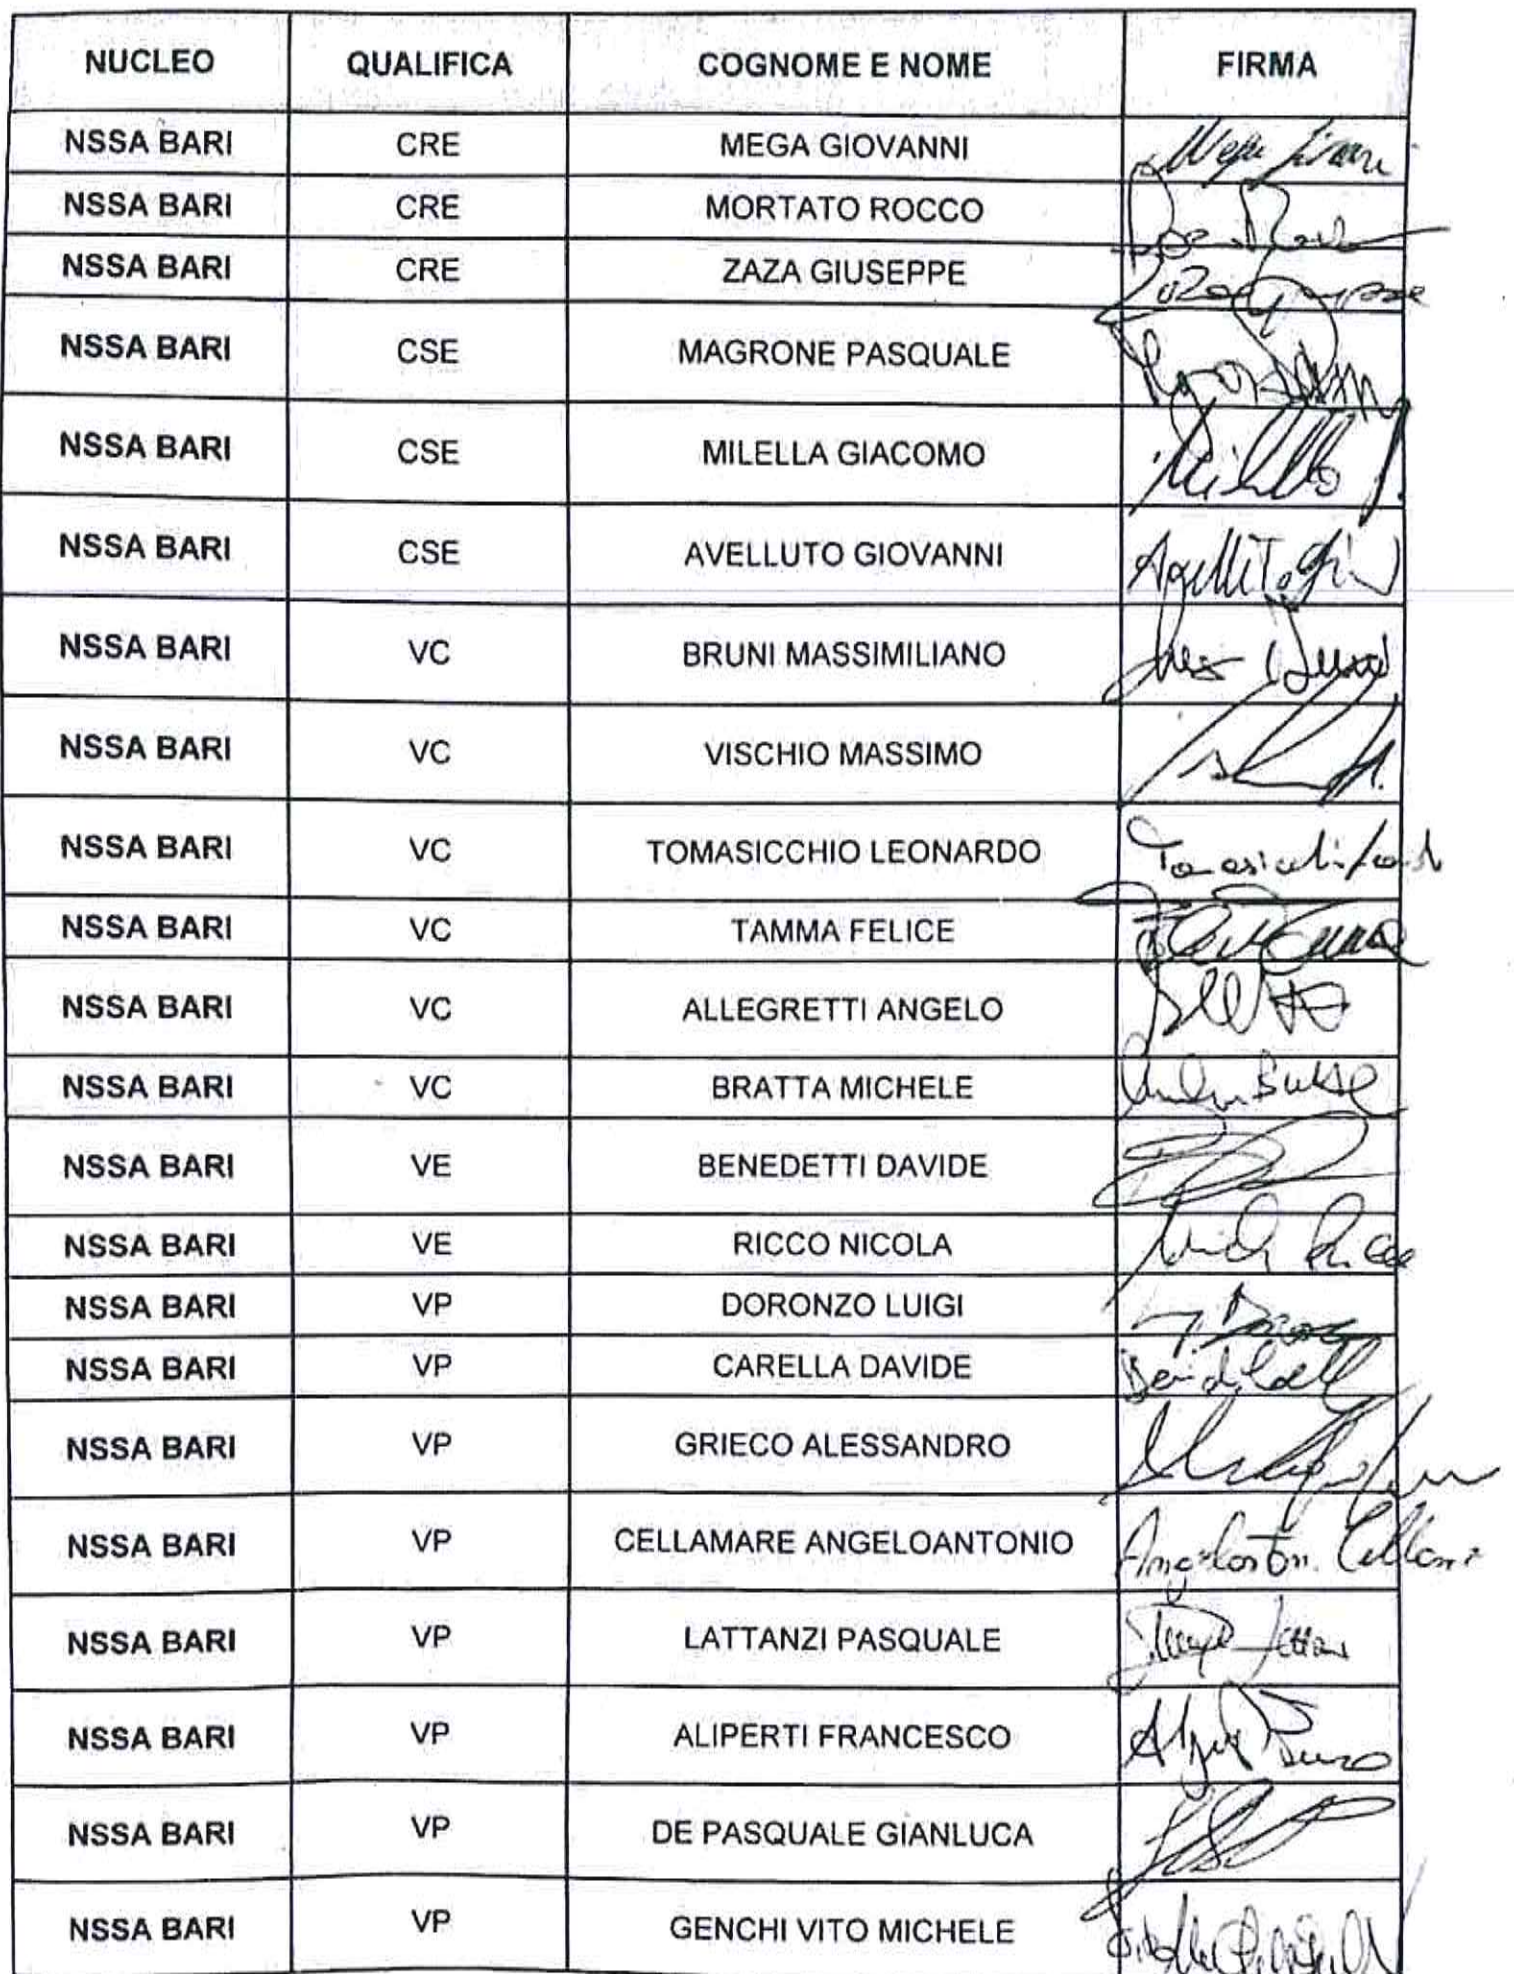 NUCLEO QUALIFICA COGNOME E NOME FIRMA
NSSA BARI CRE MEGA GIOVANNI
NSSA BARI CRE MORTATO ROCCO
NSSA BARI CRE ZAZA GIUSEPPE
NSSA BARI CSE MAGRONE PASQUALE
NSSA BARI CSE MILELLA GIACOMO
NSSA BARI CSE AVELLUTO GIOVANNI
NSSA BARI VC BRUNI MASSIMILIANO
NSSA BARI VC VISCHIO MASSIMO
NSSA BARI VC TOMASICCHIO LEONARDO
NSSA BARI VC TAMMA FELICE
NSSA BARI VC ALLEGRETTI ANGELO
NSSA BARI VC BRATTA MICHELE
NSSA BARI VE BENEDETTI DAVIDE
NSSA BARI VE RICCO NICOLA
NSSA BARI VP DORONZO LUIGI
NSSA BARI VP CARELLA DAVIDE
NSSA BARI VP GRIECO ALESSANDRO
NSSA BARI VP CELLAMARE ANGELOANTONIO
NSSA BARI VP LATTANZI PASQUALE
NSSA BARI VP ALIPERTI FRANCESCO
NSSA BARI VP DE PASQUALE GIANLUCA
NSSA BARI VP GENCHI VITO MICHELE